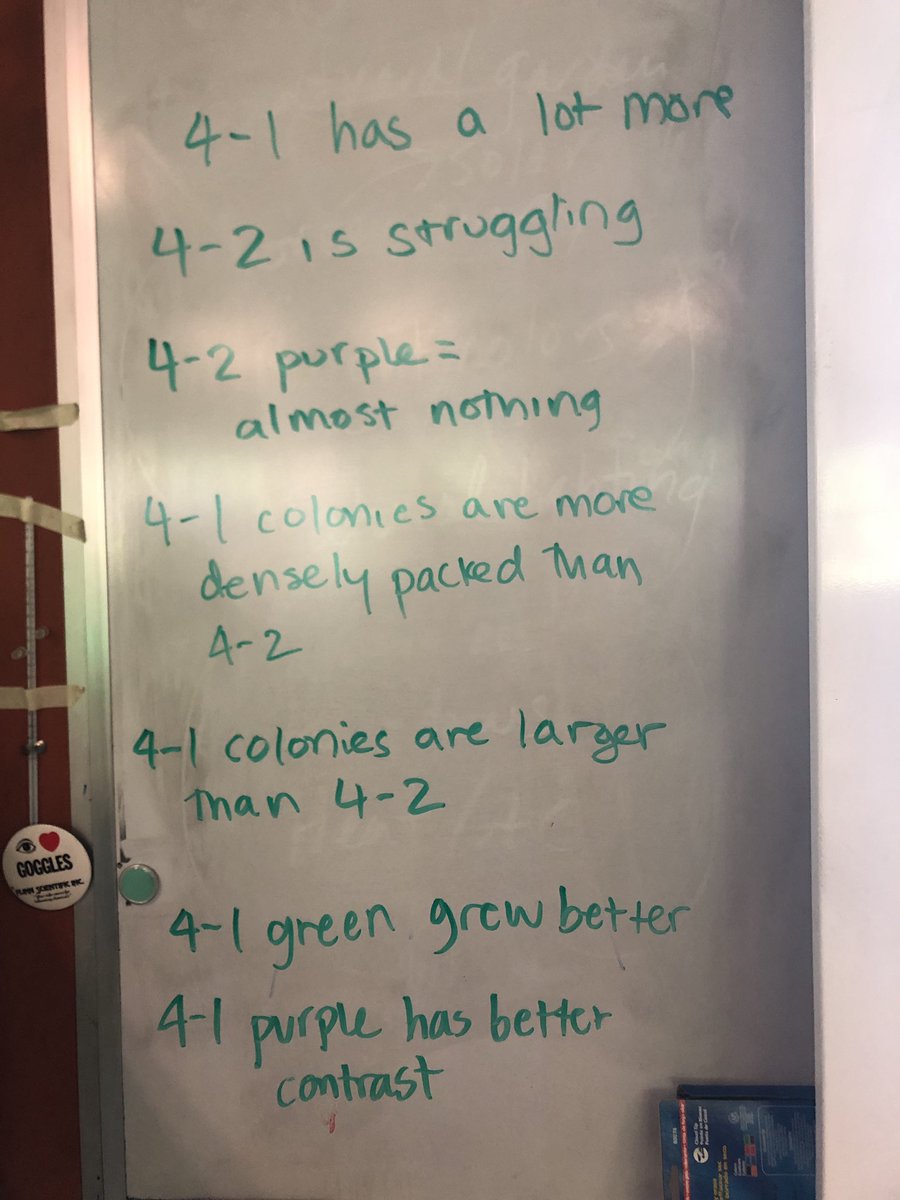 4-1 has a lot more
4-2 is struggling
4-2 purple =
almost nothing
4-1 colonies are more
densely packed than
4-2
4-1 colonies are larger
than 4-2
4-1 green grew better
4-1 purple has better
contrast
GOGGLES
FLINN SCIENTIFIC INC.